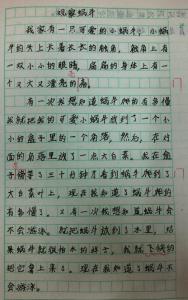 观察蜗牛
我家有一只可爱的小蜗牛。小蜗
牛的头上长着长长的触角，触角上有
一双小小的眼睛，扁扁的身体上有一
个又大又漂亮的壳。
有一次我想知道蜗牛爬的有多慢
我就把我的可爱小蜗牛放到了一个小
小的盒子里的一个角落，然后，在对
面的角落里放了一点大白菜。我在盒
子旁等了三十分钟才看到蜗牛爬到了
大白菜叶上，现在我知道了蜗牛爬的
有多慢了。又有一次我想知道蜗牛会
不会游泳，就把蜗牛放到了水里，结
果蜗牛就很怕水的样子，我就飞快的
把它拿上来了。现在我知道了蜗牛不
会游泳。